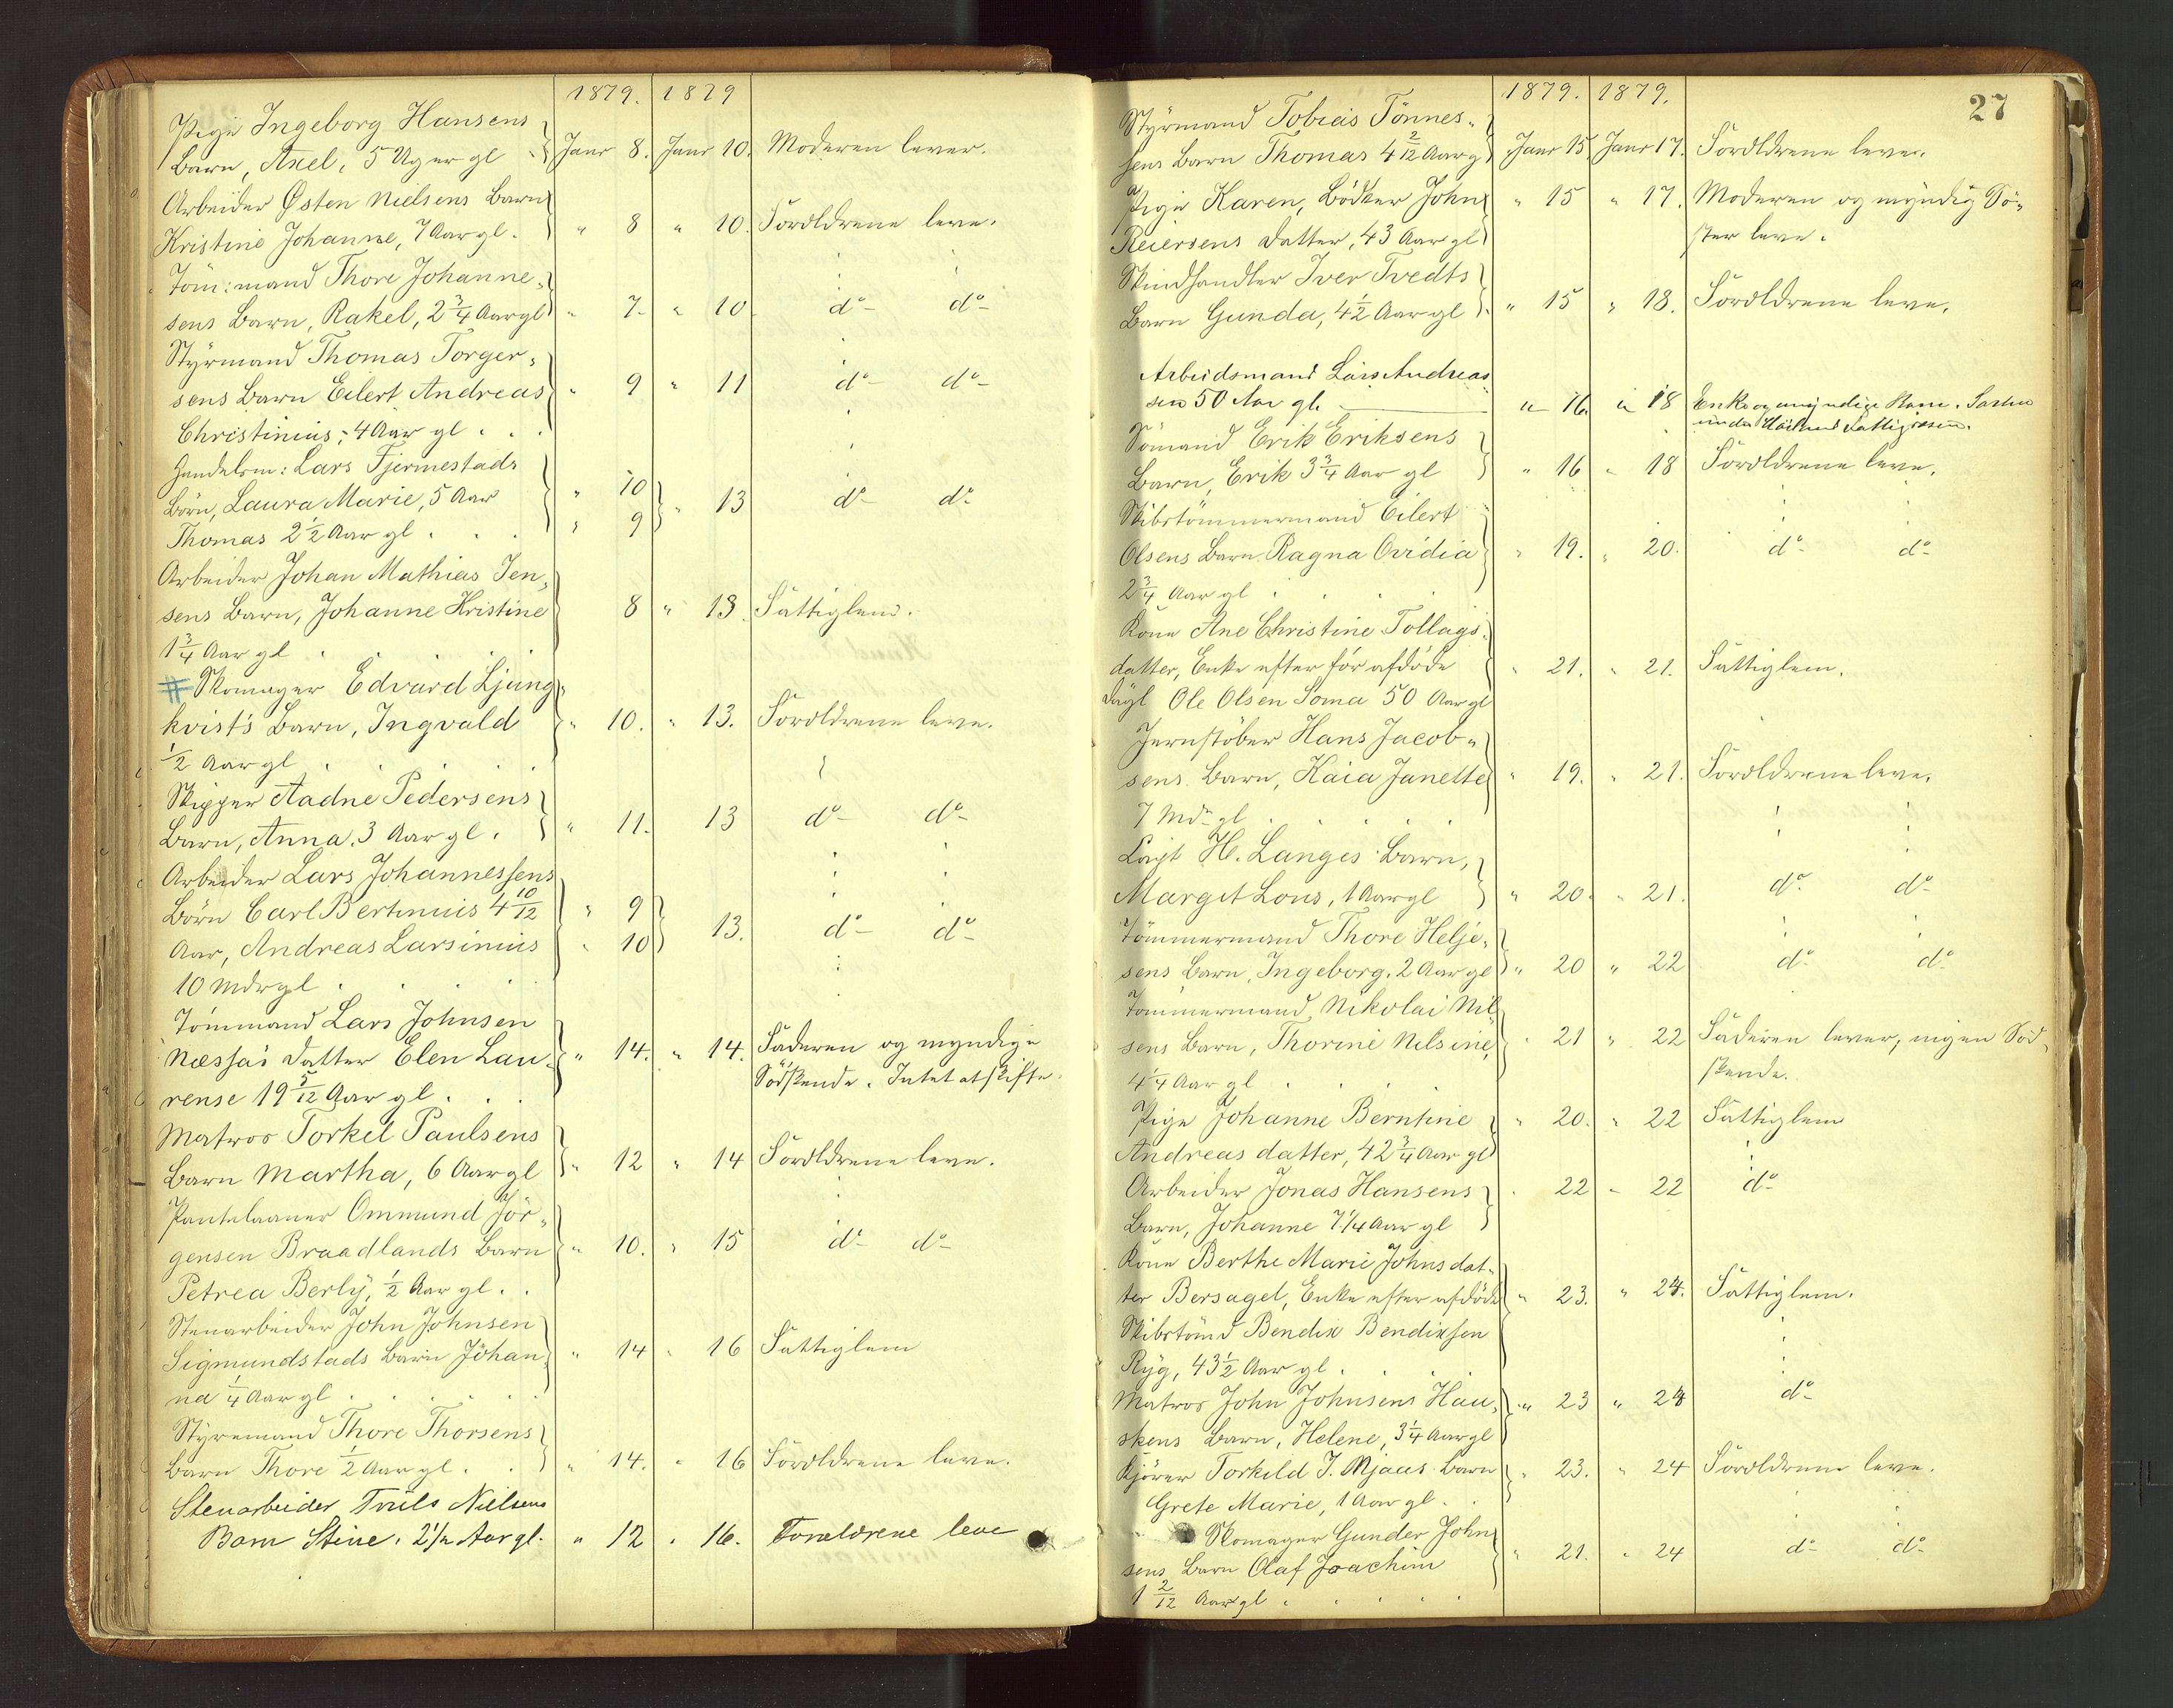 1879. 1879
Pige Ingeborg Hansens
Barn, Axel, 5 Uger gl Janr 8. Janr 10. Moderen lever.
Arbeider Østen Nielsens Barn
Kristine Johanne, 7 Aar gl. " 8 " 10. Forældrene leve.
Töm:mand Thore Johanne-
sens Barn, Rakel, 2 3/4 Aar gl " 7. " 10 do do
Styrmand Thomas Torger-
sens Barn Eilert Andreas " 9 " 11 do do
Christinius, 4 Aar gl.
Handelsm: Lars Fjermestads
Börn, Laura Marie, 5 Aar " 10
" 13 do do
Thomas 2 1/2 Aar gl. " 9
Arbeider Johan Mathias Jen-
sens Barn, Johanne Kristine 8 " 13. Fattiglem.
1 3/4 Aar gl
# Skomager Edvard Ljung-
kvist's Barn, Ingvald " 10. " 13. Forældrene leve.
1/2 Aar gl
Skipper Aadne Pedersens
Barn, Anna, 3 Aar gl. " 11. 13 do do
Arbeider Lars Johannessens
Börn Carl Bertinius 4 10/12 " 9
13. do do
Aar, Andreas Larsinius " 10
10 Mdr gl.
Tömmand Lars Johnsen
Næssa's Datter Elen Lau- " 14. " 14. Faderen og myndige
Södskende. Intet at skifte.
rense 19 5/12 Aar gl.
Matros Torkel Paulsens
Barn Martha, 6 Aar gl " 12 " 14 Forældrene leve.
Pantelaaner Ommund Jör-
gensen Braadlands Barn " 10. " 15 do do
Petrea Berly, 1/2 Aar gl.
Stenarbeider John Johnsen
Sigmundstads Barn Johan- " 14 " 16 Fattiglem
na 1/4 Aar gl
Styrmand Thore Thorsens
Barn Thore 1/2 Aar gl. " 14. " 16 Forældrene leve.
Stenarbeider Truls Nielsens
Barn Stine. 2 1/2 Aar gl. " 12 " 16. Forældrene leve
27
1879. 1879.
Styrmand Tobias Tönnes-
sens Barn Thomas 4 2/12 Aar g Janr 15 Janr 17. Forældrene leve.
Pige Karen, Bödker John " 15 " 17. Moderen og myndig Sö-
Reiersens Datter, 43 Aar gl ster leve.
Skindhandler Iver Tvedts
Barn Gunda, 4 1/2 Aar gl. " 15 " 18. Forældrene leve.
Arbeidsmand Lars Andreas
sen 50 Aar gl. " 16. " 18 Enke og umyndige Børn.
under Fattigvæsen.
Sömand Erik Eriksens
Barn, Erik 3 3/4 Aar gl " 16 " 18 Forældrene leve.
Skibstömmermand Eilert
Olsens Barn Ragna Ovidia " 19. " 20. do do
2 3/4 Aar gl
Kone Ane Christine Tollags-
datter, Enke efter för afdöde " 21. " 21. Fattiglem.
Dagl Ole Olsen Soma 50 Aar gl
Jernstöber Hans Jacob-
sens Barn, Kaia Janette " 19. " 21. Forældrene leve.
7 Mdr gl
Capt H. Langes Barn,
Margit Lous, 1 Aar gl " 20. " 21. do do
Tömmermand Thore Helje-
sens Barn, Ingeborg, 2 Aar gl " 20 " 22 do do
Tömmermand, Nikolai Nil-
sens Barn, Thorine Nilsine, " 21 " 22 Faderen lever, ingen Söd-
4 1/4 Aar gl skende.
Pige Johanne Berntine " 20. " 22 Fattiglem
Andreas datter, 42 3/4 Aar gl
Arbeider Jonas Hansens " 22 " 22 do
Barn, Johanne 7 1/4 Aar gl
Kone Berthe Marie Johnsdat-
ter Bersagel, Enke efter afdöde " 23. " 24. Fattiglem.
Skibstömd Bendix Bendixsen
Ryg, 43 1/2 Aar gl.
Matros John Johnsens Hau- " 23 " 24 do
skens Barn, Helene, 3 1/4 Aar gl
Kjörer Torkild J. Mjaas Barn " 23. " 24 Forældrene leve.
Grete Marie, 1 Aar gl.
Skomager Gunder John
sens Barn Olaf Joachim " 21. " 24 do do
1 2/12 Aar gl